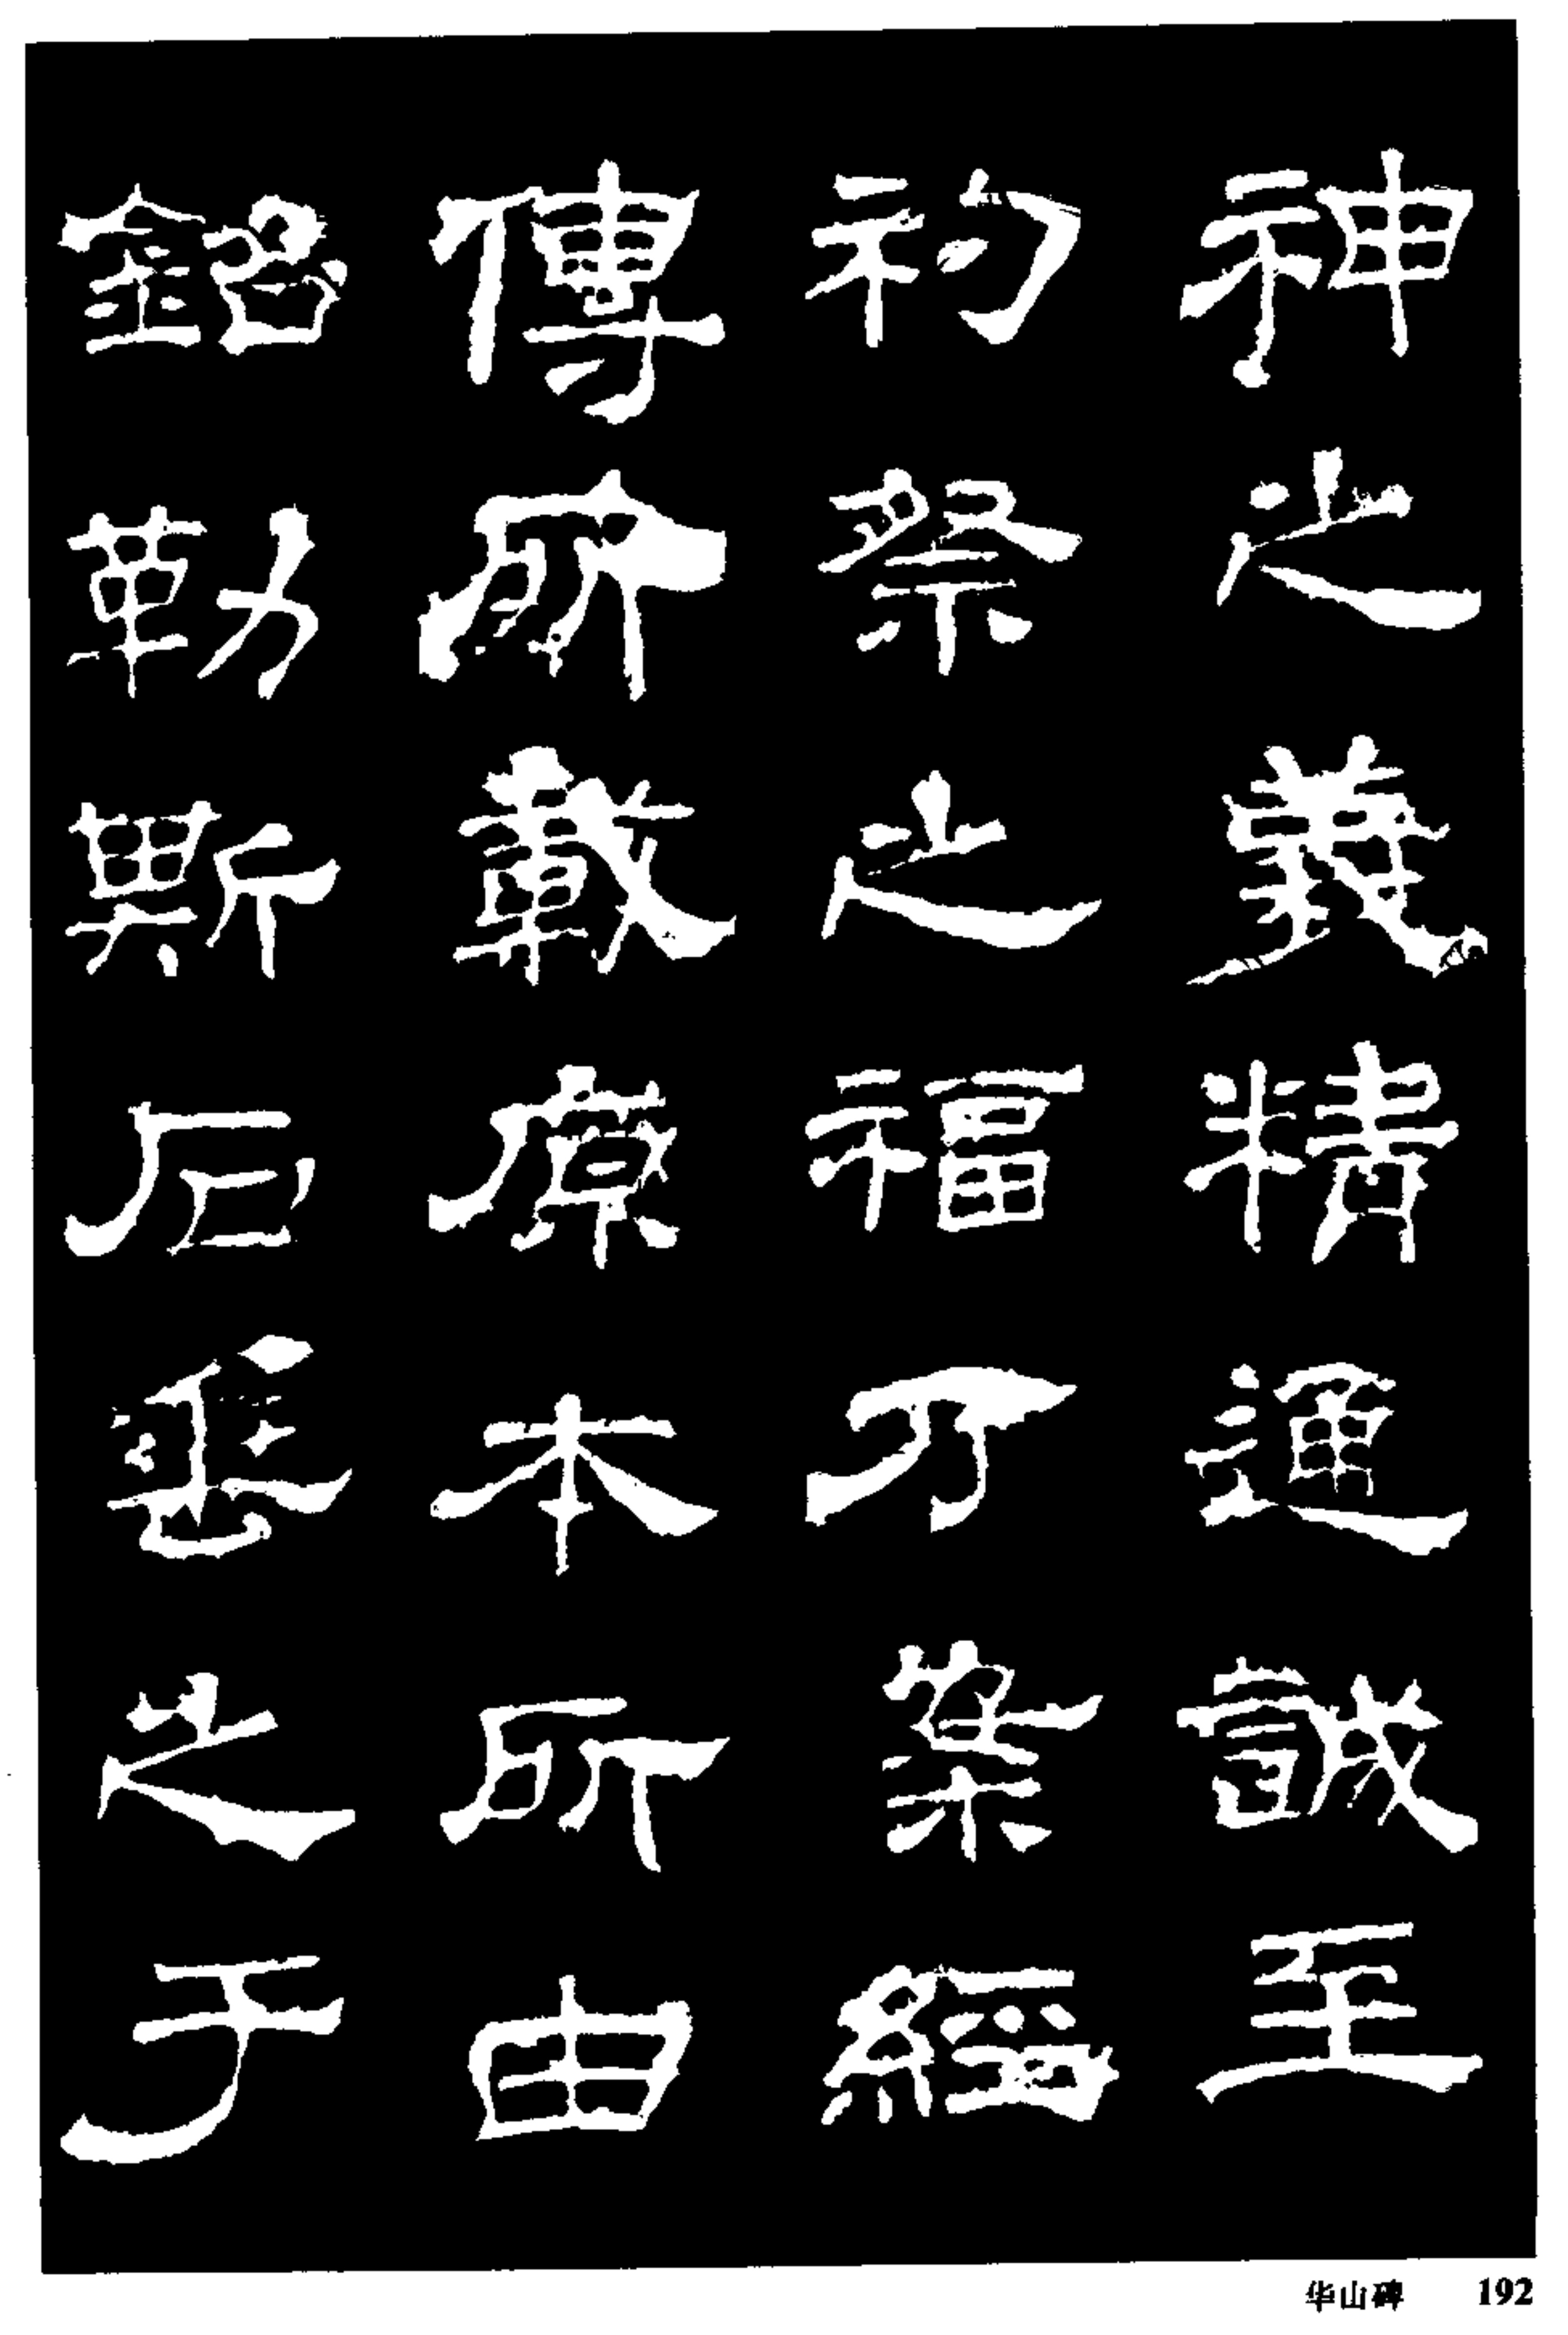 神之義精通誠至
礿祭之福乃案經
傳所載原本所由
銘勒斯石垂之于
华山碑 192